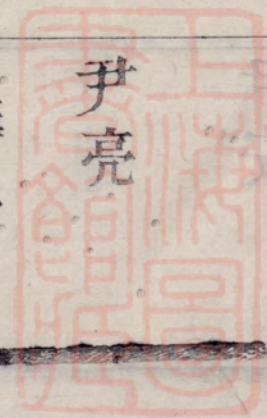 尹亮
上海圖
書館藏